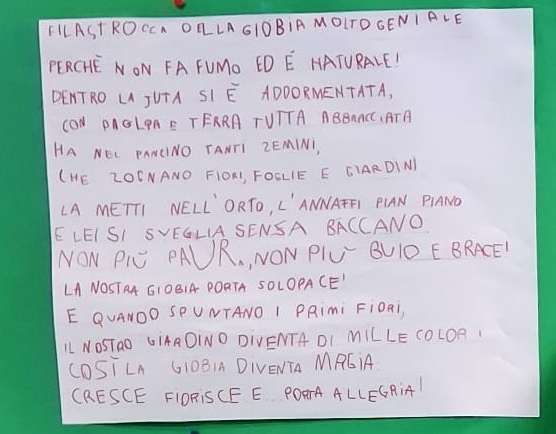 FILASTROCCA DELLA GIOBIA MOLTO GENIALE
PERCHÈ NON FA FUMO ED É NATURALE!
DENTRO LA JUTA SI È ADDORMENTATA,
CON PAGLPA E TERRA TUTTA ABBRACCIATA
HA NEL PANCINO TANTI ZEMINI,
CHE ZOGNANO FIORI, FOGLIE E GIARDINI
LA METTI NELL'ORTO, L'ANNAFFI PIAN PIANO
E LEI SI SVEGLIA SENSA BACCANO.
NON PIÙ PAURA, NON PIÙ BUIO E BRACE!
LA NOSTRA GIOBIA PORTA SOLO PACE!
E QUANDO SPUNTANO I PRIMI FIORI,
IL NOSTRO GIARDINO DIVENTA DI MILLE COLORI
COSÌ LA GIOBIA DIVENTA MAGIA
CRESCE FIORISCE E PORTA ALLEGRIA!